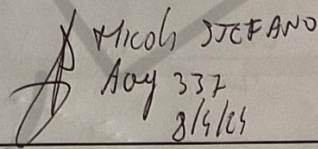 Micoli STEFANO
Aoy 337
8/5/24